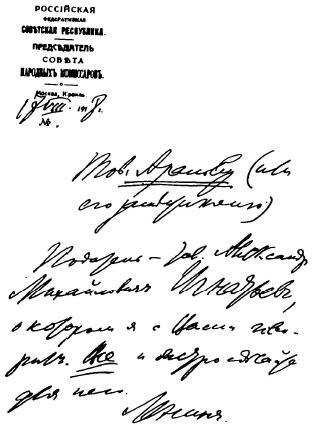 РОССІЙСКАЯ
ФЕДЕРАТИВНАЯ
СОВѢТСКАЯ РЕСПУБЛИКА.
ПРЕДСѢДАТЕЛЬ
СОВѢТА
НАРОДНЫХЪ КОМИССАРОВЪ.
Москва, Кремль.
VIII. 1918 г.
№.
Тов. Аралову (или
его
Податель — тов. Александр
Михайлович Игнатьев,
о котором я с Вами гово-
рил.
для него.
Ленин.